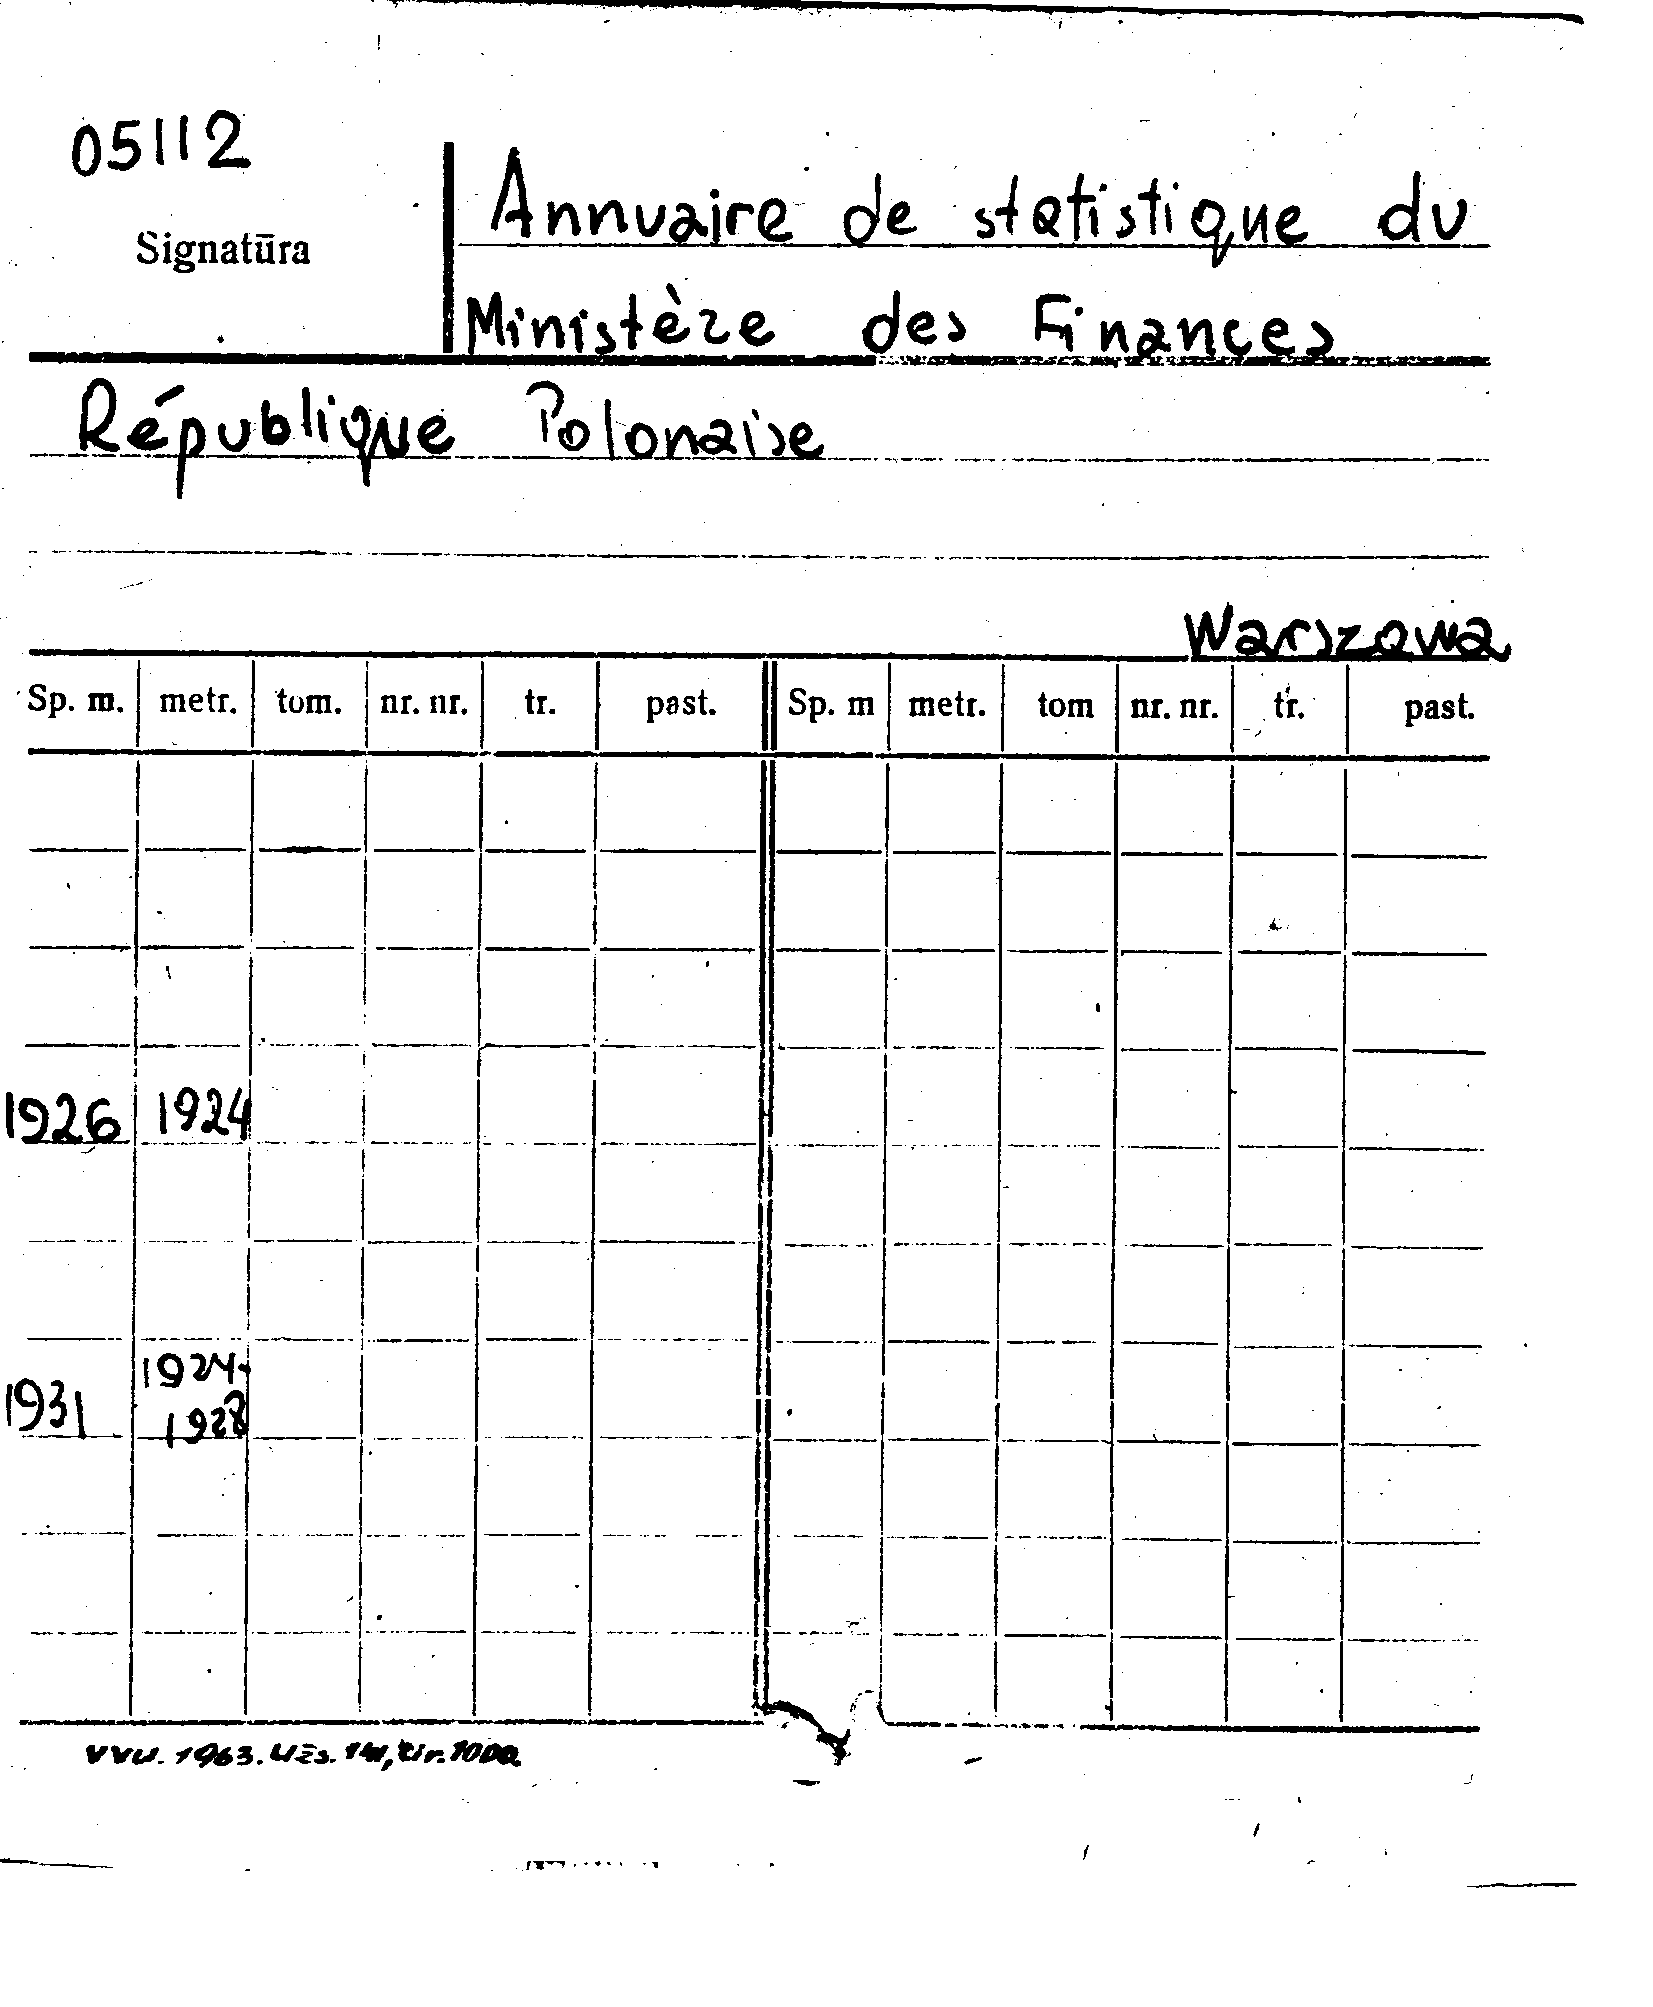 05112
Signatūra
Annuaire de statistique du
Ministère des Finances
République Polonaise
Warszawa
Sp. m. metr. tom. nr. nr. tr. past. Sp. m metr. tom nr. nr. tr. past.
1926 1924
1924-
1931
1928
VVU. 1963. Užs. 141, tir. 1000